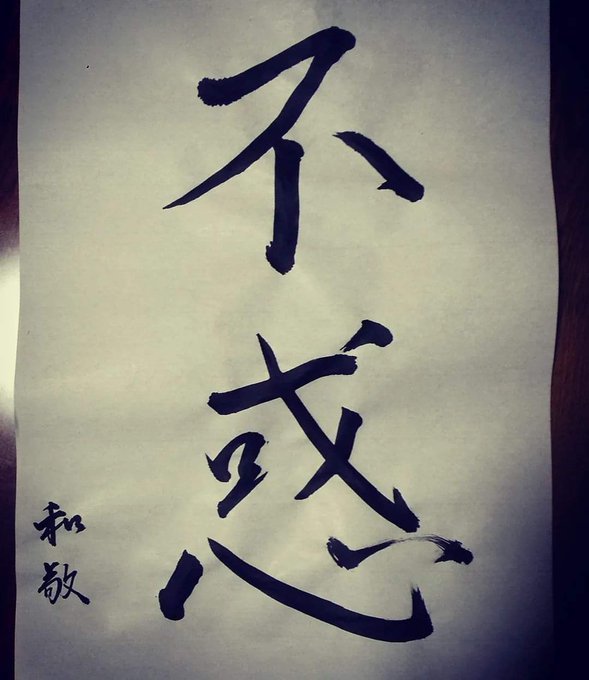 不惑
和敬